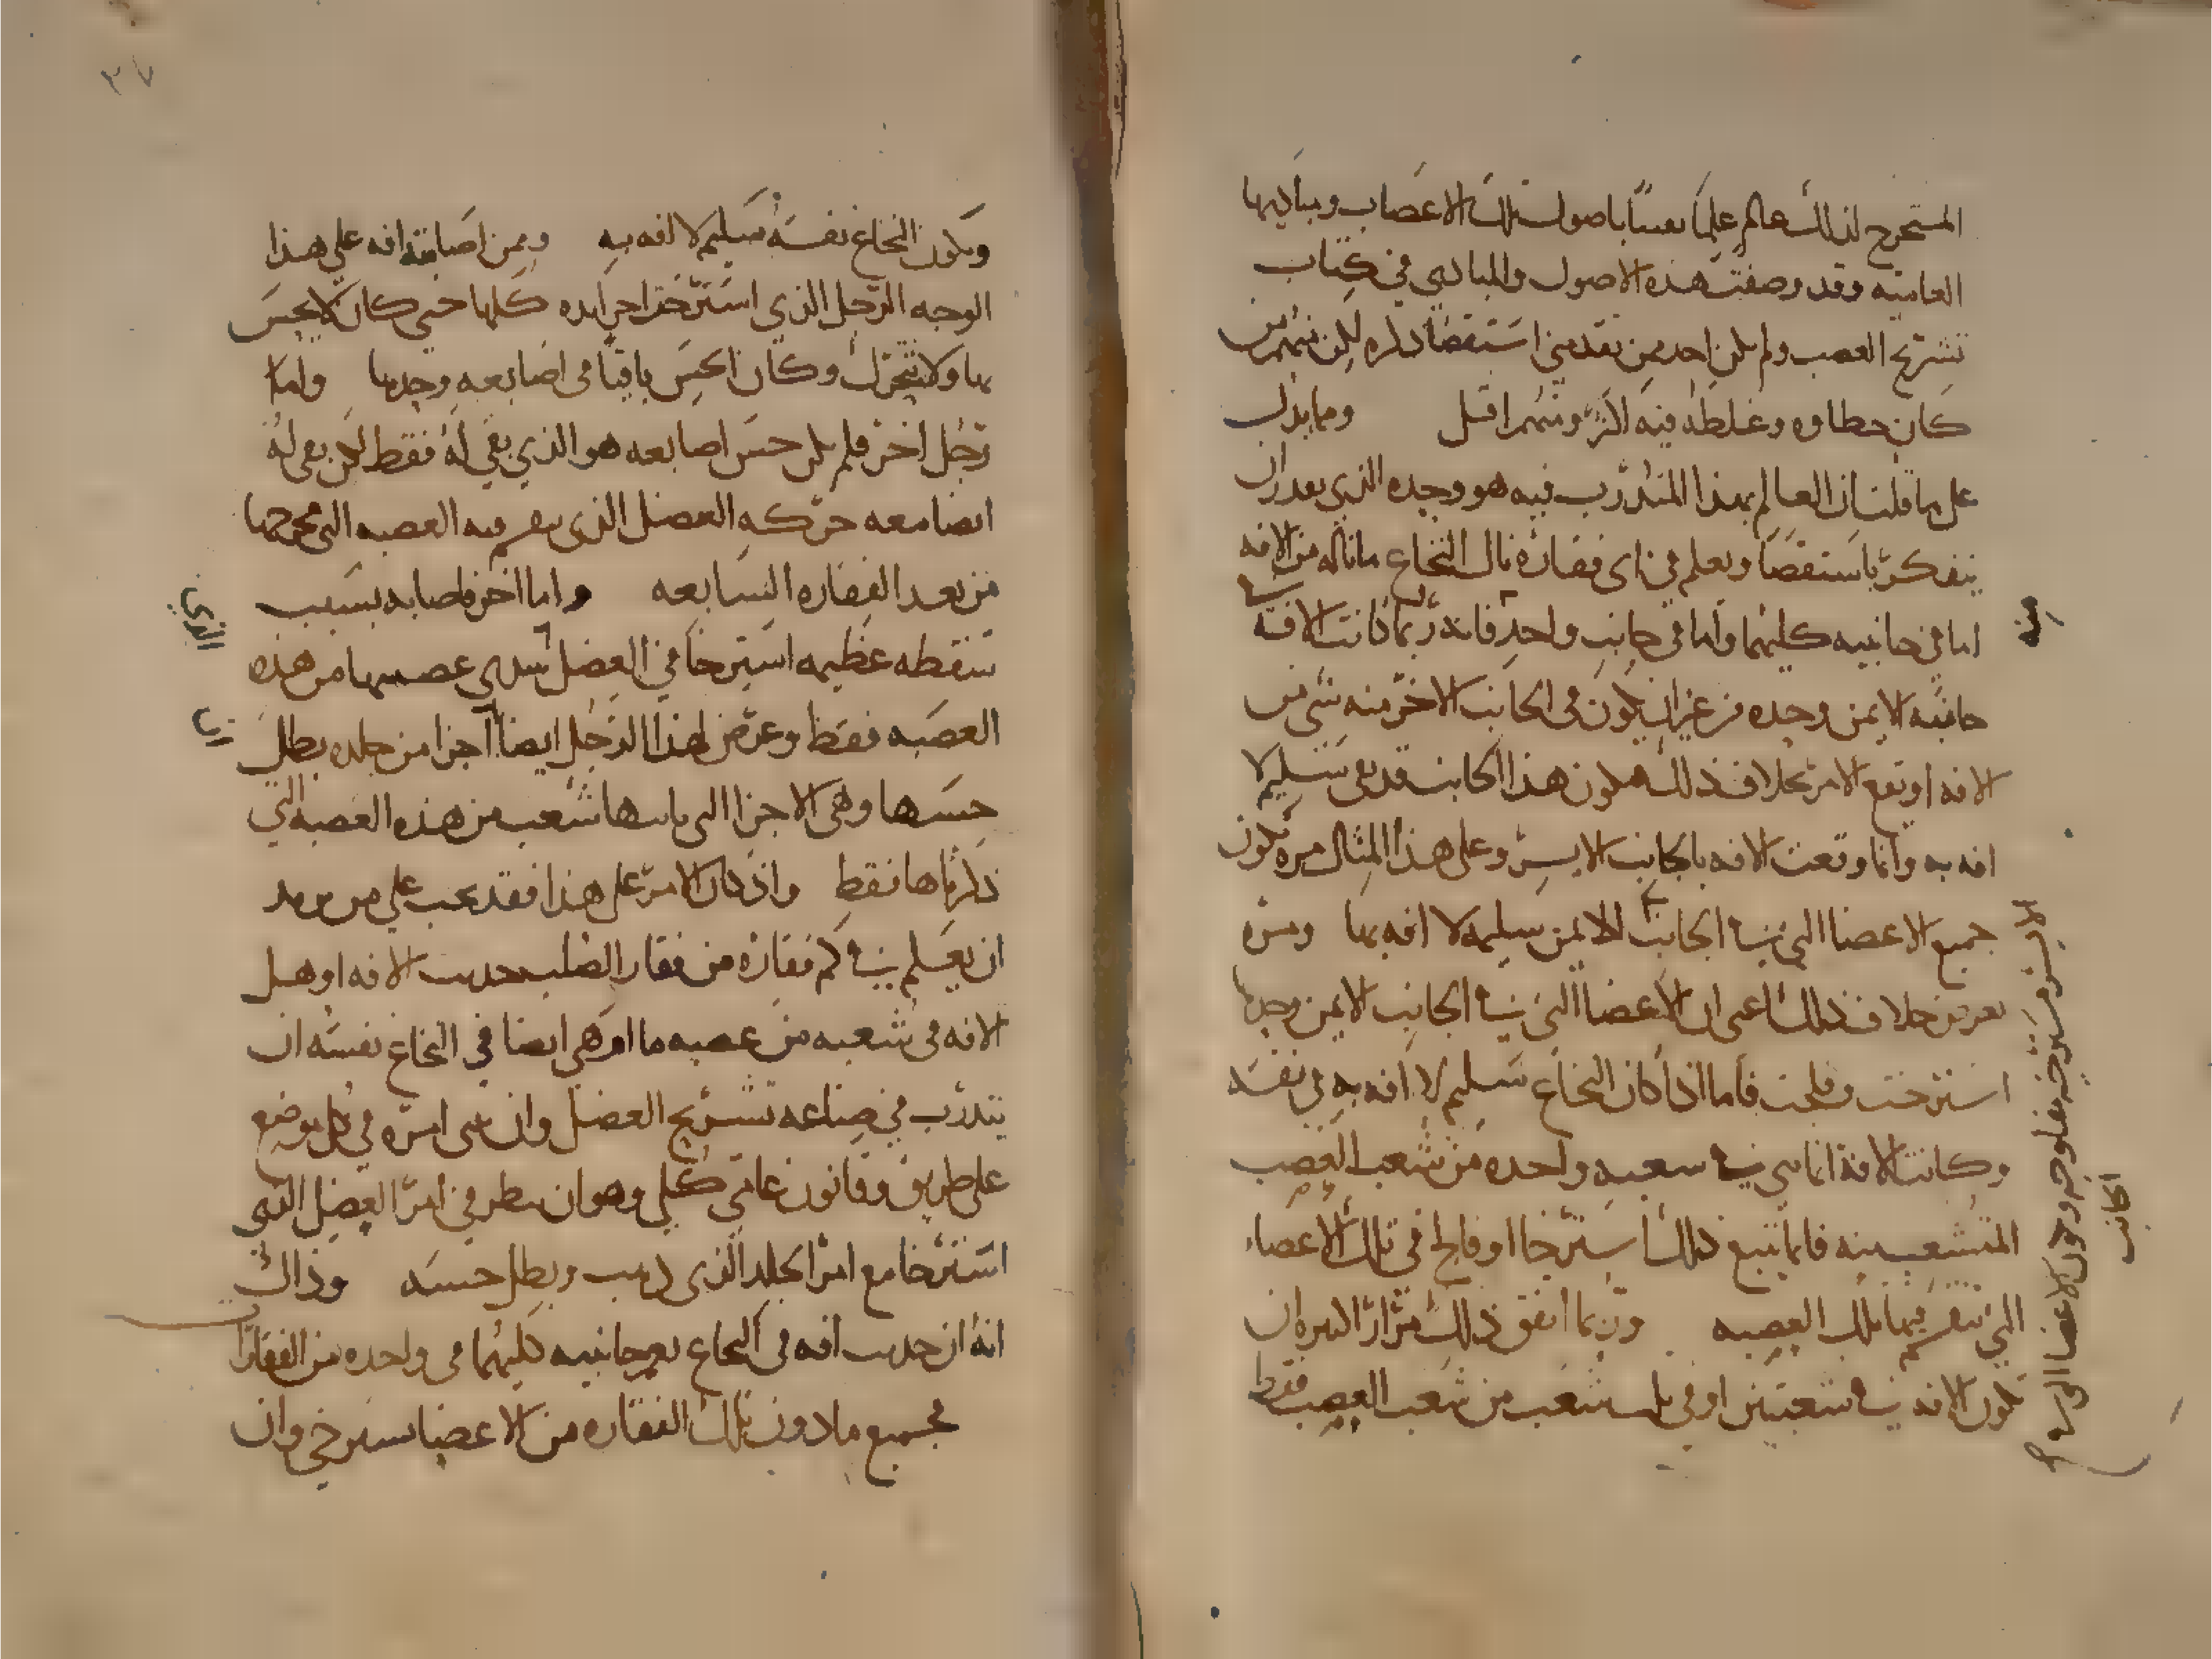 المستخرج لذلك عالم علما نفسا باصول تلك الاعصاب ومباديها
العاميه وقد وصفت هذه الاصول والمبادى في كتاب
تشريح العصب ولم يكن احد ممن تقدمني استقصا ذكره لكن منهم من
كان خطاوه وغلطه فيه اكثر ومنهم اقل ومما يدل
على ما قلت ان العالم بهذا المتدرب فيه هو وحده الذي يقدر ان
يتفكر باستقصا ويعلم في اى فقاره نال النخاع ما ناله من الافه
اما في جانبيه كليهما واما في جانب واحد فانه ربما كانت الافه في
منه
جانبه الايمن وحده من غير ان يكون في الجانب الاخر منه شي من
الافه او تقع الامر بخلاف ذلك فيكون هذا الجانب قد بقى سليم لا
افه به وانما وقعت الافه بالجانب الايسر وعلى هذا المثال مره تكون
جميع الاعضا التي في الجانب الايمن سليمه لا افه بها ومره
الايسر مسترخيه مفلوجه وتكون الاعضا التي في
الجانب
يعرض خلاف ذلك اعنى ان الاعضا التي في الجانب الايمن وحدها
استرخت وفلجت فاما اذا كان النخاع سليم لا افه به في نفسه
وكانت الافه انما هي في شعبه واحده من شعب العصب
المتشعب منه فانما تتبع ذلك استرخا او فالج في تلك الاعضاء
التي تنقسم فيها تلك العصبه وربما اتفق ذلك مرارا كثيره ان
تكون الافه في شعبتين او في ثلث شعب من شعب العصب فقط
٣٧
ويكون النخاع نفسه سليم لا افه به وممن اصابته افه على هذا
الوجه الرجل الذي استرخت اجزا يده كلها حتى كان لا يحس
بها ولا تتحرك وكان الحس باقيا في اصابعه وحدها واما
رجل اخر فلم يكن حس اصابعه هو الذي بقي له فقط لكن بقى له
ايضا معه حركه العضل الذي ينقسم فيه العصبه التي مخرجها
من بعد الفقاره السابعه واما اخر فاصابه بسبب
سقطه عظيمه استرخا في العضل عصبها من هذه
الذي
العصبه فقط وعرض لهذا الرجل ايضا ان اجزا من جلده بطل
ان
حسها وهي الاجزا التي ياتيها شعب من هذه العصبه التي
ذكرناها فقط واذ كان الامر على هذا فقد يجب على من يريد
ان يعلم في كم فقاره من فقار الصلب حدثت الافه او هل
الافه في شعبه من عصبه ما او هي ايضا في النخاع نفسه ان
يتدرب في صناعه تشريح العضل وان امره في كل موضع
على طريق وقانون عامي كلي وهو ان ينظر في امر العضل الذي
استرخا مع امر الجلد الذي ذهب وبطل حسه وذلك
انه ان حدثت افه في النخاع بجانبيه كليهما في واحده من الفقار
فجميع ما دون تلك الفقاره من الاعضا يسترخي وان